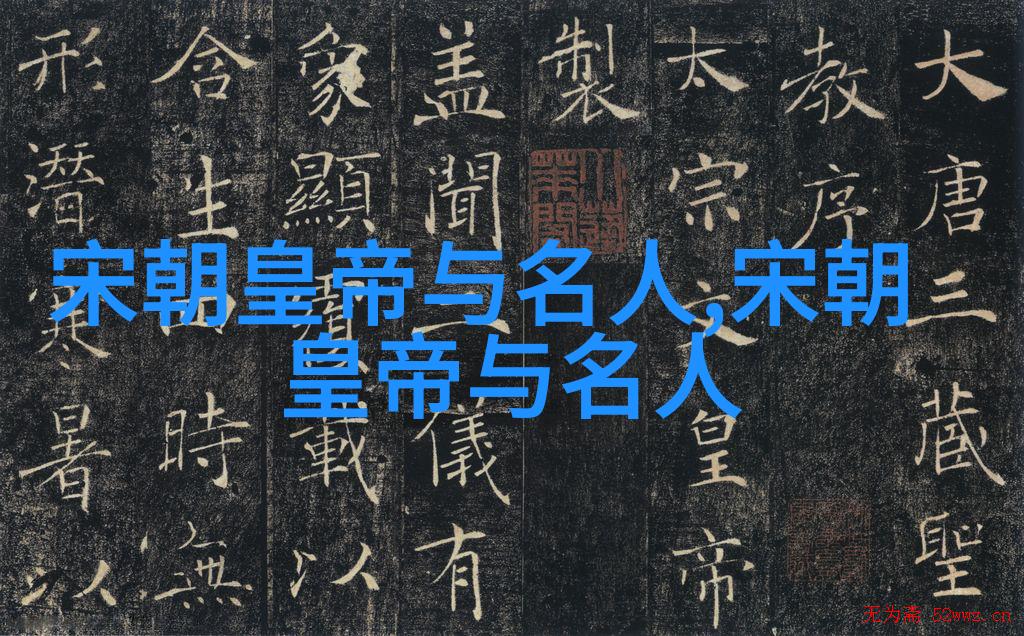 宋朝皇帝与名人,宋朝
皇帝与名人
大唐三藏聖
教序
太宗文皇帝
製
盖聞二儀有
象顯覆載以
含生四時無
形潛寒暑以
无为斋 52wwz.cn